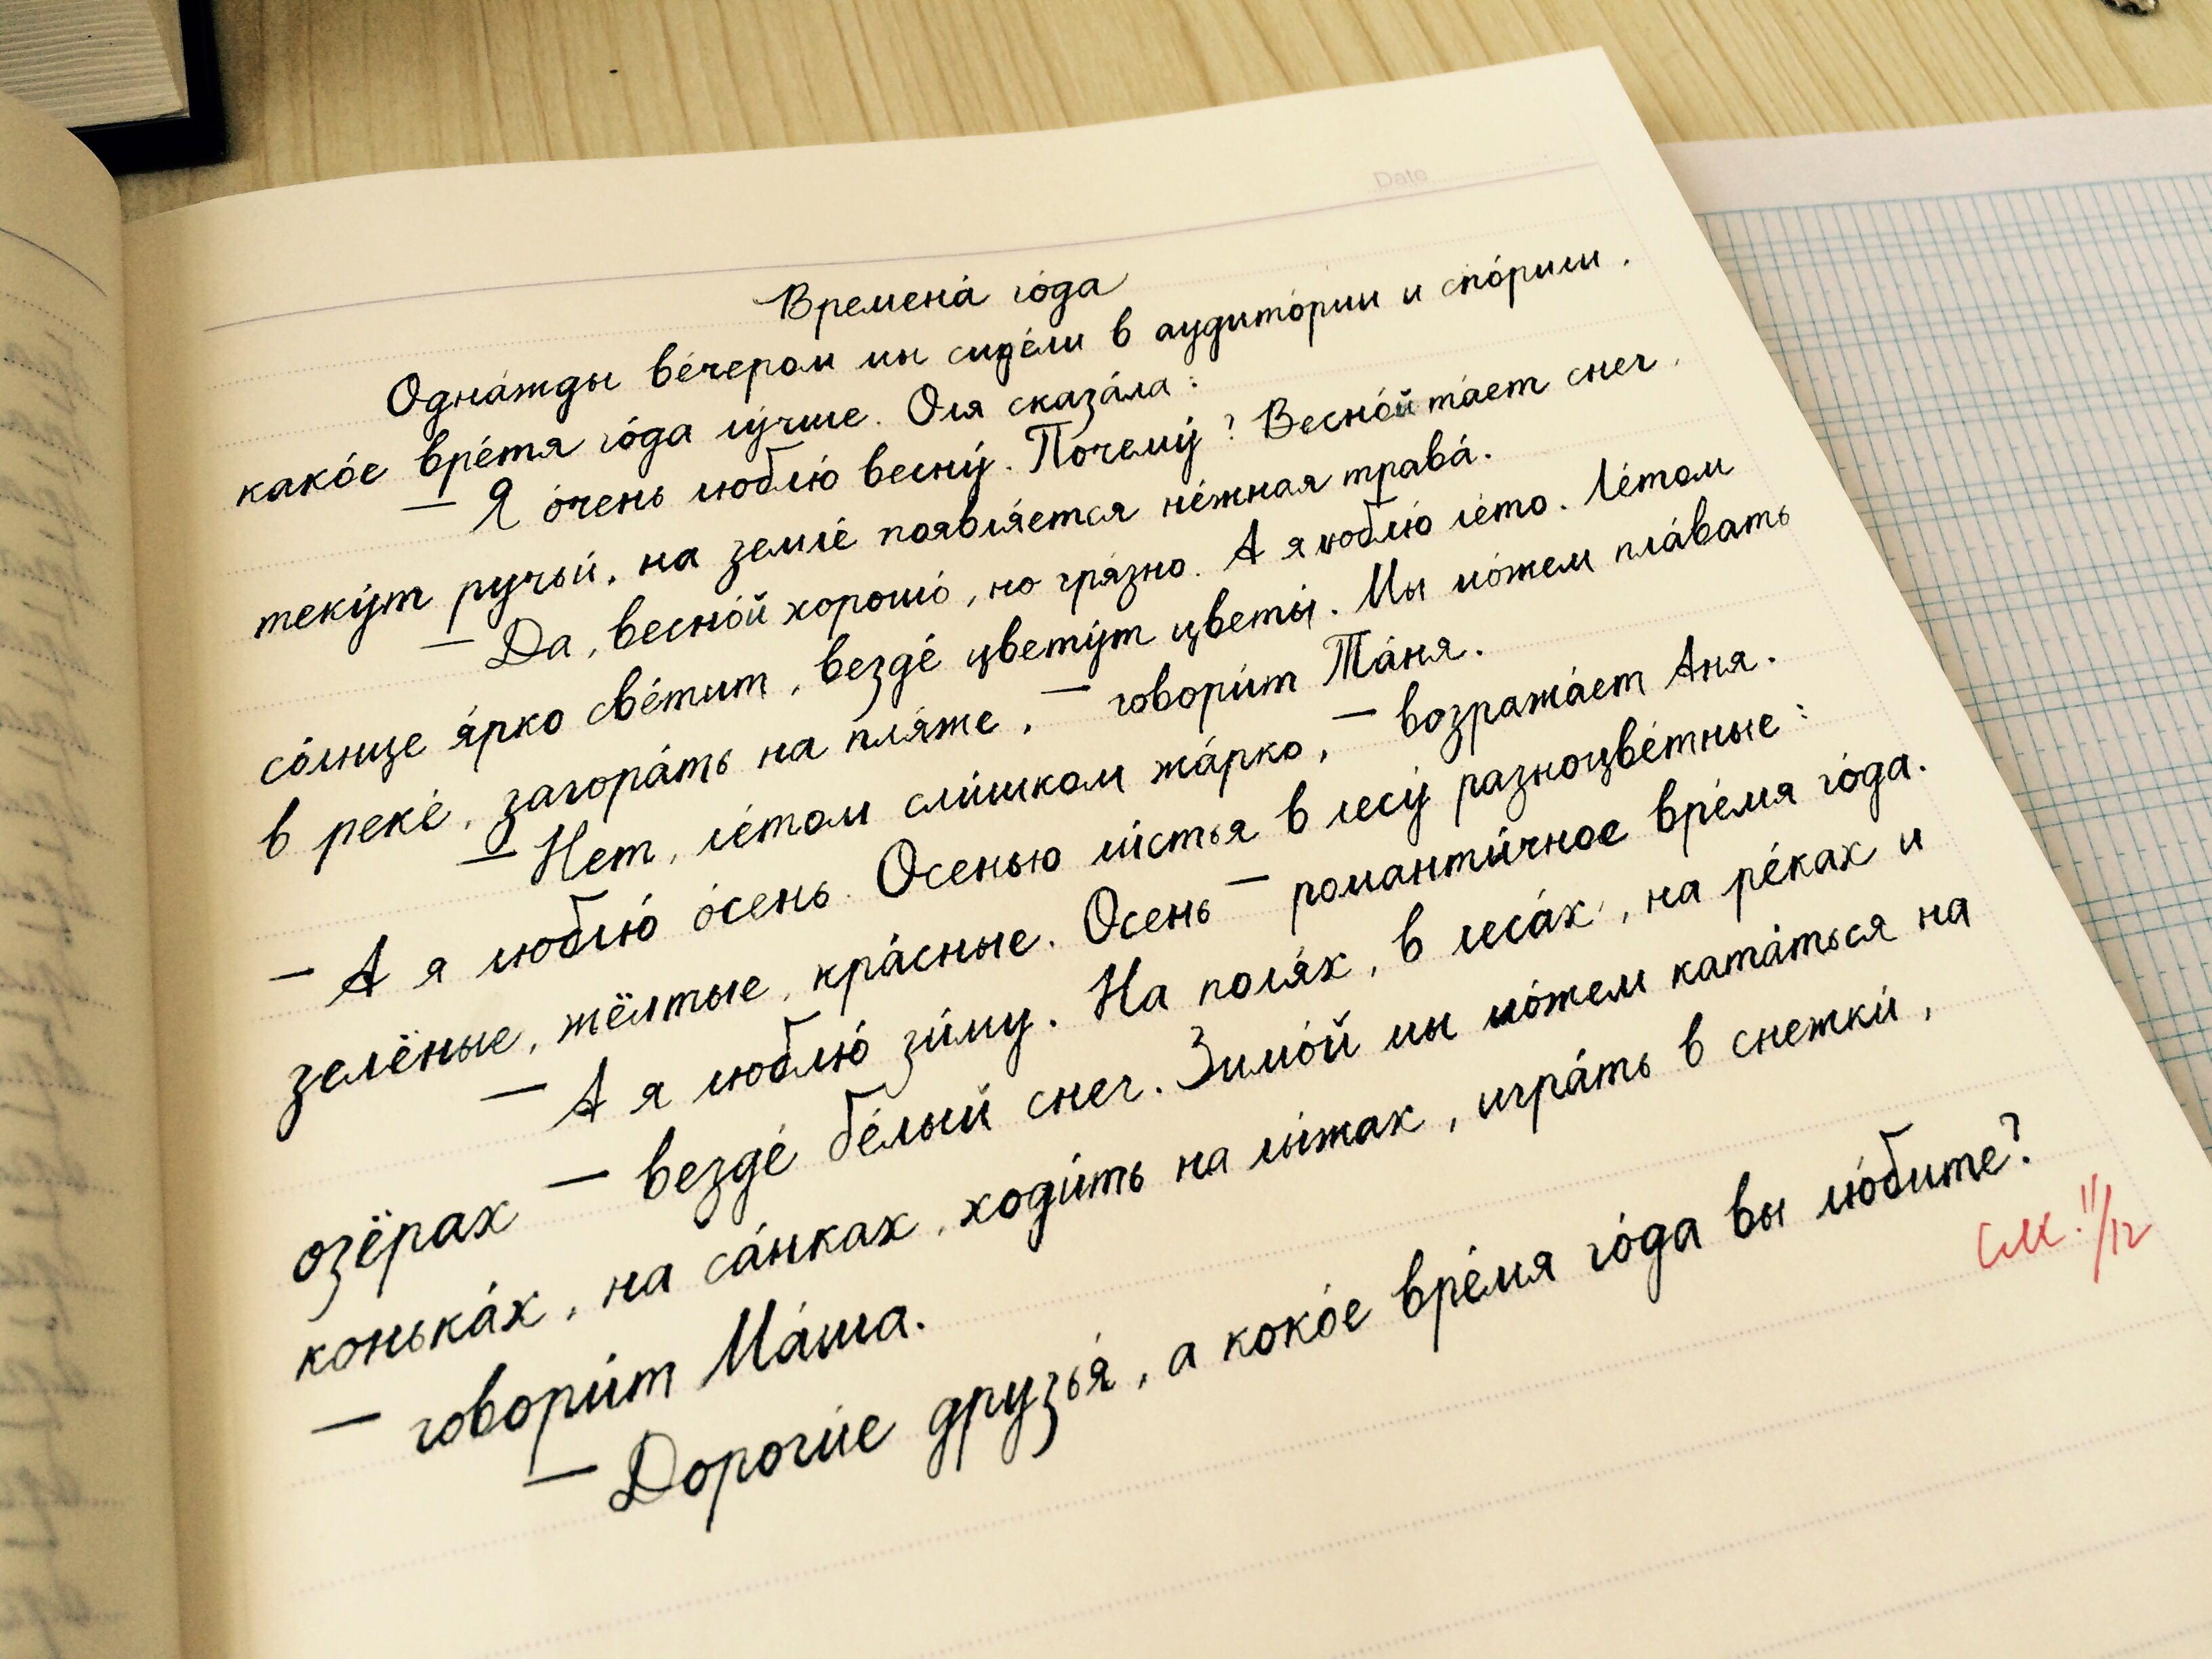 Date
Времена́ го́да
Одна́жды ве́чером мы сиде́ли в аудито́рии и спо́рили,
како́е вре́тя го́да лу́чше. Оля сказа́ла:
— Я о́чень люблю́ весну́. Почему́? Весно́й та́ет снег,
теку́т ручьи́, на земле́ появля́ется не́жная трава́.
— Да, весно́й хорошо́, но гря́зно. А я люблю́ ле́то. Ле́том
со́лнце я́рко све́тит, везде́ цвету́т цветы́. Мы мо́жем пла́вать
в реке́, загора́ть на пля́же, — говори́т Та́ня.
— Нет, ле́том сли́шком жа́рко, — возража́ет Аня.
— А я люблю́ о́сень. Осенью ли́стья в лесу́ разноцве́тные:
зелёные, жёлтые, кра́сные. Осень — романти́чное вре́мя го́да.
— А я люблю́ зи́му. На поля́х, в леса́х, на ре́ках и
озёрах — везде́ бе́лый снег. Зимо́й мы мо́жем ката́ться на
конька́х, на са́нках, ходи́ть на лы́жах, игра́ть в снежки́,
— говори́т Ма́ша.
— Дороги́е друзья́, а коко́е вре́мя го́да вы лю́бите?
см. 11/12